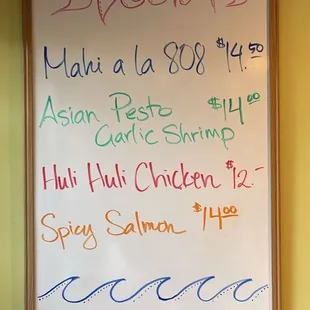 Mahi a la 808 $14.50
Asian Pesto $14.00
Garlic Shrimp
Huli Huli Chicken $12.-
Spicy Salmon $14.00